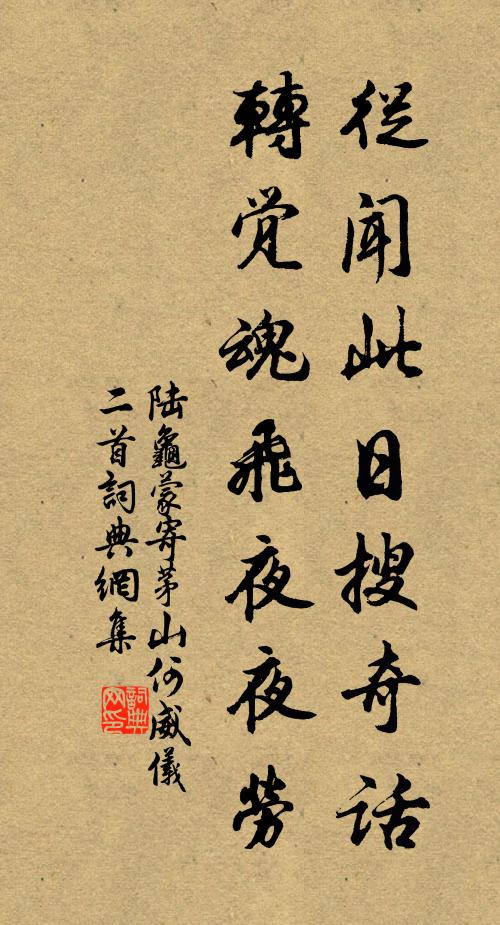 從聞此日搜奇话
轉覺魂飛夜夜勞
陆龜蒙寄茅山何威儀
二首詞典網集
詞典网印